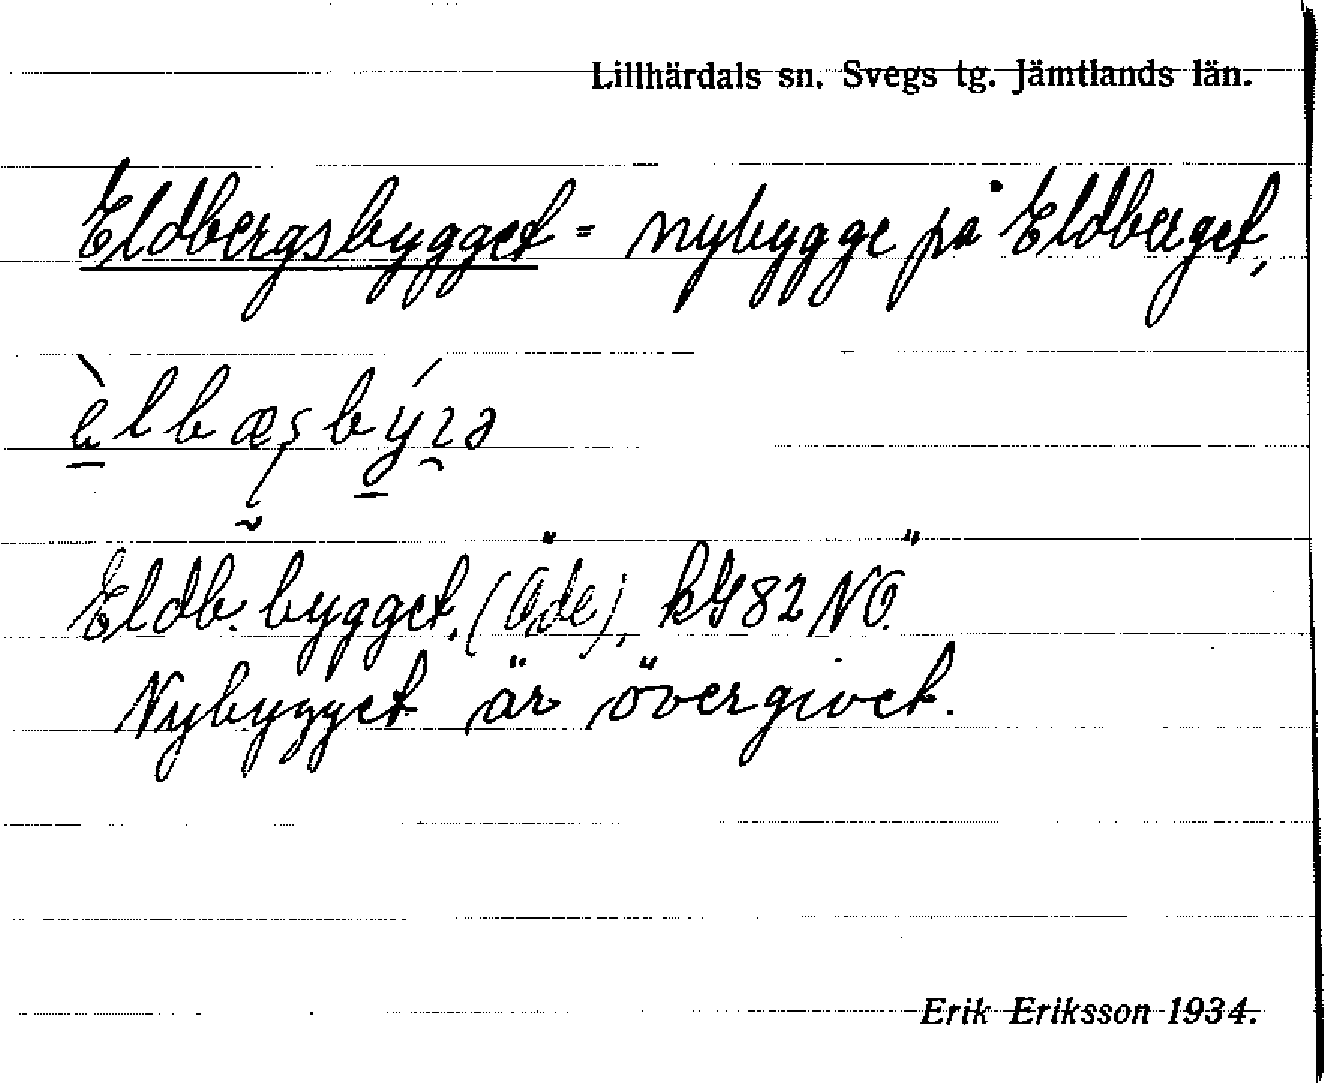 Lillhärdals sn. Svegs tg. Jämtlands län.
Eldbergsbygget = nybygge på Eldberget,
Eldb. bygget. (Öde), kG82 NÖ.
Nybygget är övergivet.
Erik Eriksson 1934.